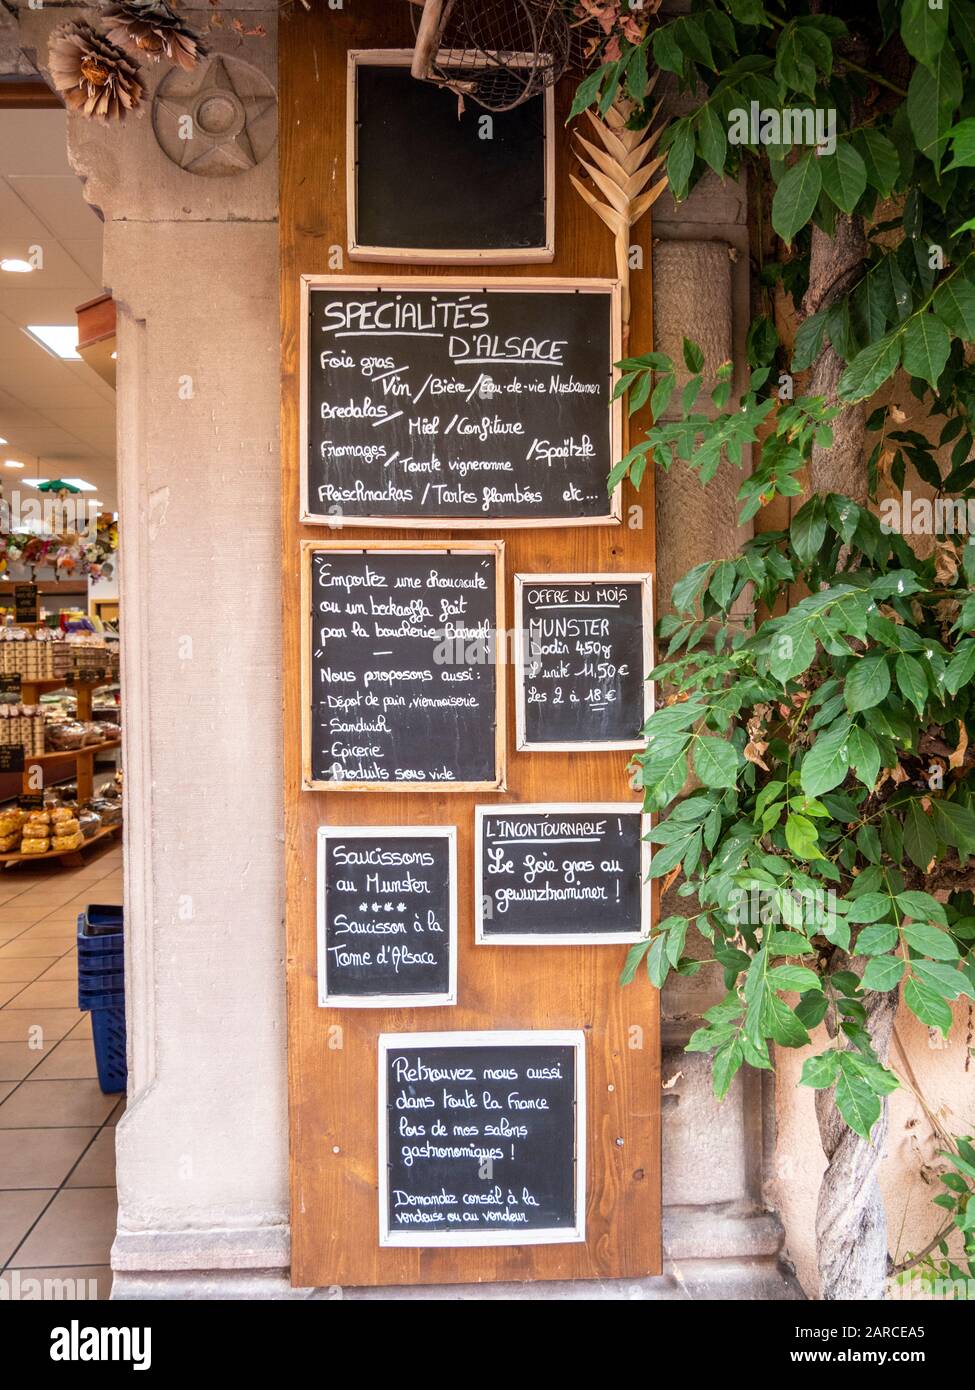 SPECIALITÉS
D'ALSACE
Foie gras/
Vin/Bière/Eau-de-vie Nusbaumer
Bredalas/
Miel/Confiture
Fromages/Tourte vigneronne/Spaëtzle
Fleischnackas/Tartes flambées etc...
"Emportez une choucroute"
ou un beckaoffa fait
par la boucherie
Nous proposons aussi:
-Dépot de pain, viennoiserie
-Sandwich
-Epicerie
-Produits sous vide
OFFRE DU MOIS
MUNSTER
Dodin 450g
L'unité 11,50€
Les 2 à 18€
L'INCONTOURNABLE !
Le foie gras au
gewurztraminer !
Saucissons
au Munster
****
Saucisson à la
Tome d'Alsace
Retrouvez nous aussi
dans toute la France
lors de nos salons
gastronomiques !
Demandez conseil à la
vendeuse ou au vendeur
alamy
Image ID: 2ARCEA5
www.alamy.com